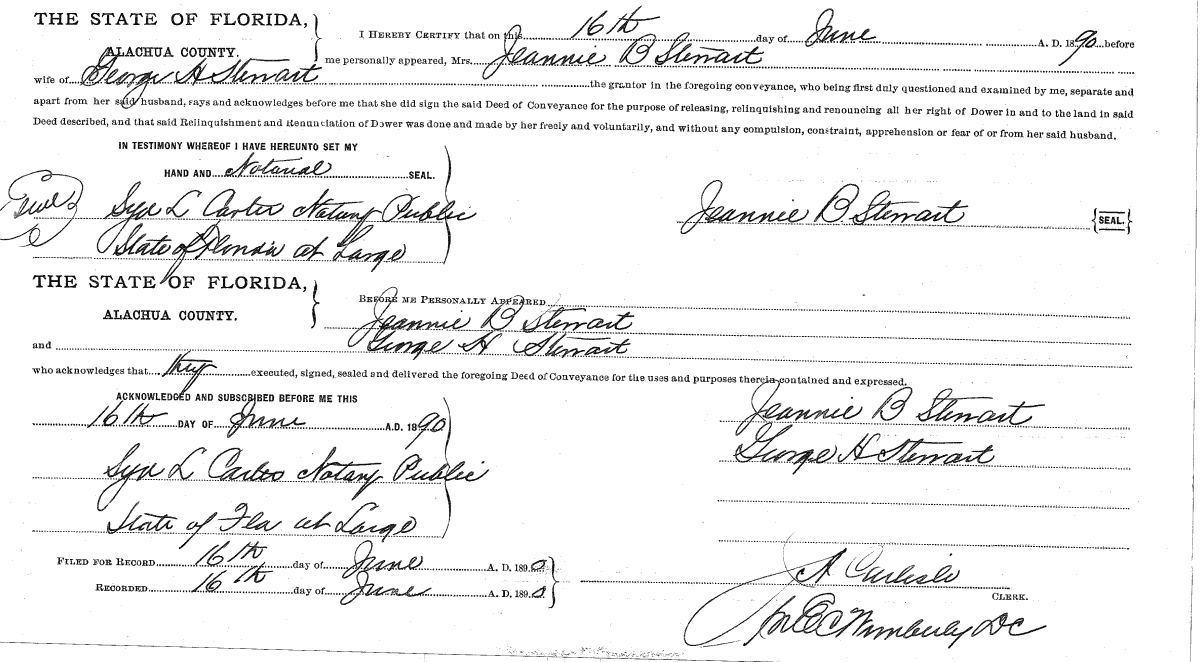 THE STATE OF FLORIDA,
ALACHUA COUNTY.
I HEREBY CERTIFY that on this 16th day of June A. D. 1890 before
me personally appeared, Mrs. Jeannie B Stewart
wife of George H Stewart the grantor in the foregoing conveyance, who being first duly questioned and examined by me, separate and
apart from her said husband, says and acknowledges before me that she did sign the said Deed of Conveyance for the purpose of releasing, relinquishing and renouncing all her right of Dower in and to the land in said
Deed described, and that said Relinquishment and Renunciation of Dower was done and made by her freely and voluntarily, and without any compulsion, constraint, apprehension or fear of or from her said husband.
IN TESTIMONY WHEREOF I HAVE HEREUNTO SET MY
HAND AND Notarial SEAL.
Seal
Syd L Carter Notary Public
State of Florida at Large
Jeannie B. Stewart {SEAL.}
THE STATE OF FLORIDA,
ALACHUA COUNTY.
BEFORE ME PERSONALLY APPEARED
Jeannie B Stewart
and George H Stewart
who acknowledges that they executed, signed, sealed and delivered the foregoing Deed of Conveyance for the uses and purposes therein contained and expressed.
ACKNOWLEDGED AND SUBSCRIBED BEFORE ME THIS
16th DAY OF June A.D. 1890
Syd L Carter Notary Public
State of Fla at Large
Jeannie B Stewart
George H Stewart
FILED FOR RECORD 16th day of June A. D. 1890
RECORDED 16th day of June A. D. 1890
Carlisle
CLERK.
Wimberly DC